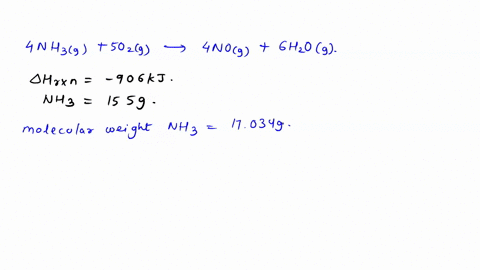 4NH₃(g) + 5O₂(g) ⟶ 4NO(g) + 6H₂O(g).
ΔHrxn = -906kJ.
NH₃ = 155g.
molecular weight NH₃ = 17.034g.